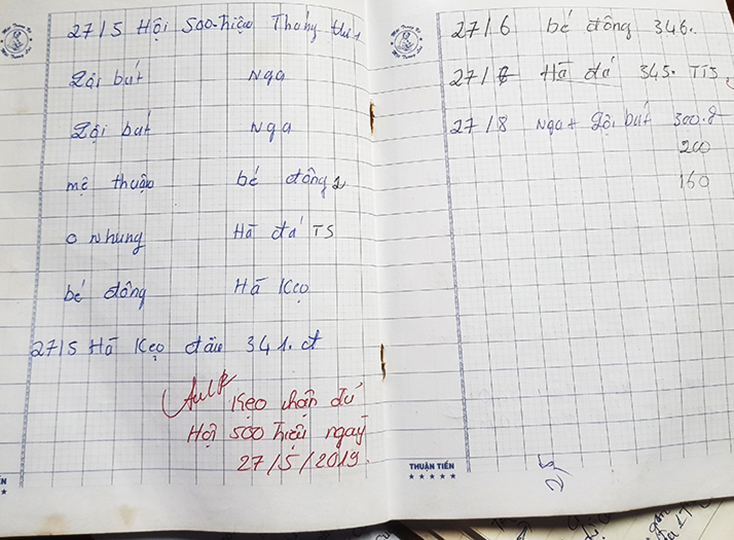 27/5 Hội 500 triệu Tháng
Lội bút Nga
Lội bút Nga
mệ thuận bé đông 2
o nhung Hà đá TS
bé đông Hà Kẹo
27/5 Hà Kẹo đầu 341. đ
Kẹo nhận đủ
Hội 500 triệu ngay
27/5/2019.
THUẬN TIẾN
27/6 bé đông 346.
27/7 Hà đá 345. TTS
27/8 Nga + Lội bút 300.
200
160